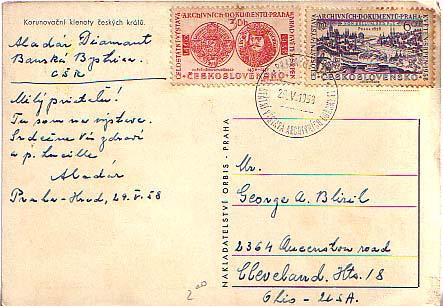 Korunovační klenoty českých králů.
Aladár Diamant
Banská Bystrica
ČSR
Milý priateľu!
Tu som na výstave.
Srdečne Vás zdraví
a p. Lucille
Aladár
Praha-Hrad, 29.V.58
CELOSTÁTNÍ VÝSTAVA ARCHIVNÍCH DOKUMENTŮ-PRAHA
ČESKOSLOVENSKO
CELOSTÁTNÍ VÝSTAVA ARCHIVNÍCH DOKUMENTŮ-PRAHA
ČESKOSLOVENSKO
29.V.1958
NAKLADATELSTVÍ ORBIS - PRAHA
Mr.
George A. Bliźil
2364 Queenston road
Cleveland. Hts. 18
Ohio - USA.
2⁰⁰